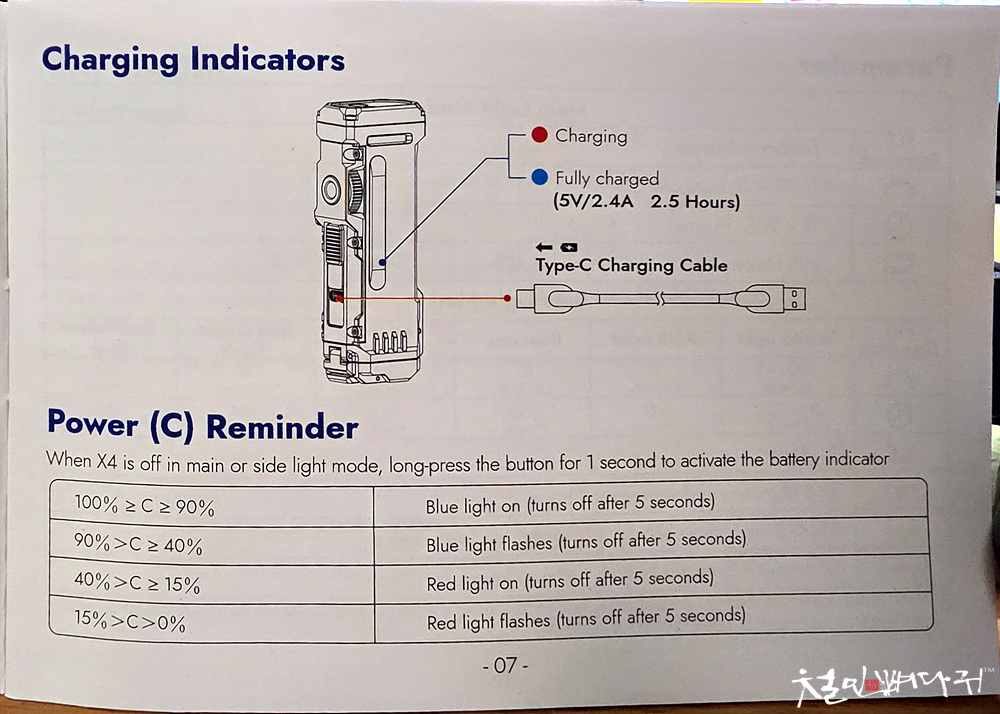 Charging Indicators
Charging
Fully charged
(5V/2.4A 2.5 Hours)
Type-C Charging Cable
Power (C) Reminder
When X4 is off in main or side light mode, long-press the button for 1 second to activate the battery indicator
100% ≥ C ≥ 90% Blue light on (turns off after 5 seconds)
90% >C ≥ 40% Blue light flashes (turns off after 5 seconds)
40% >C ≥ 15% Red light on (turns off after 5 seconds)
15% >C>0% Red light flashes (turns off after 5 seconds)
- 07 -